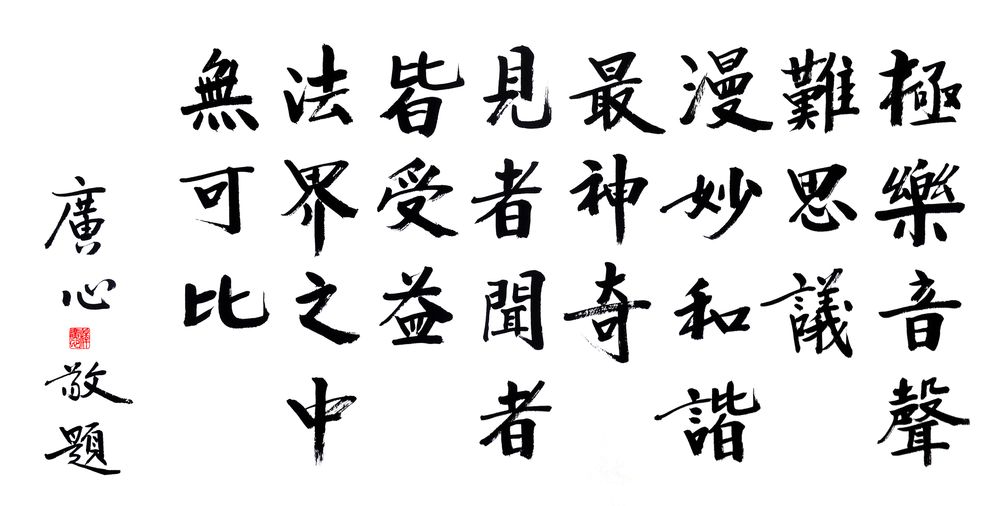 極樂音聲
難思議
漫妙和諧
最神奇
見者聞者
皆受益
法界之中
無可比
廣心敬題